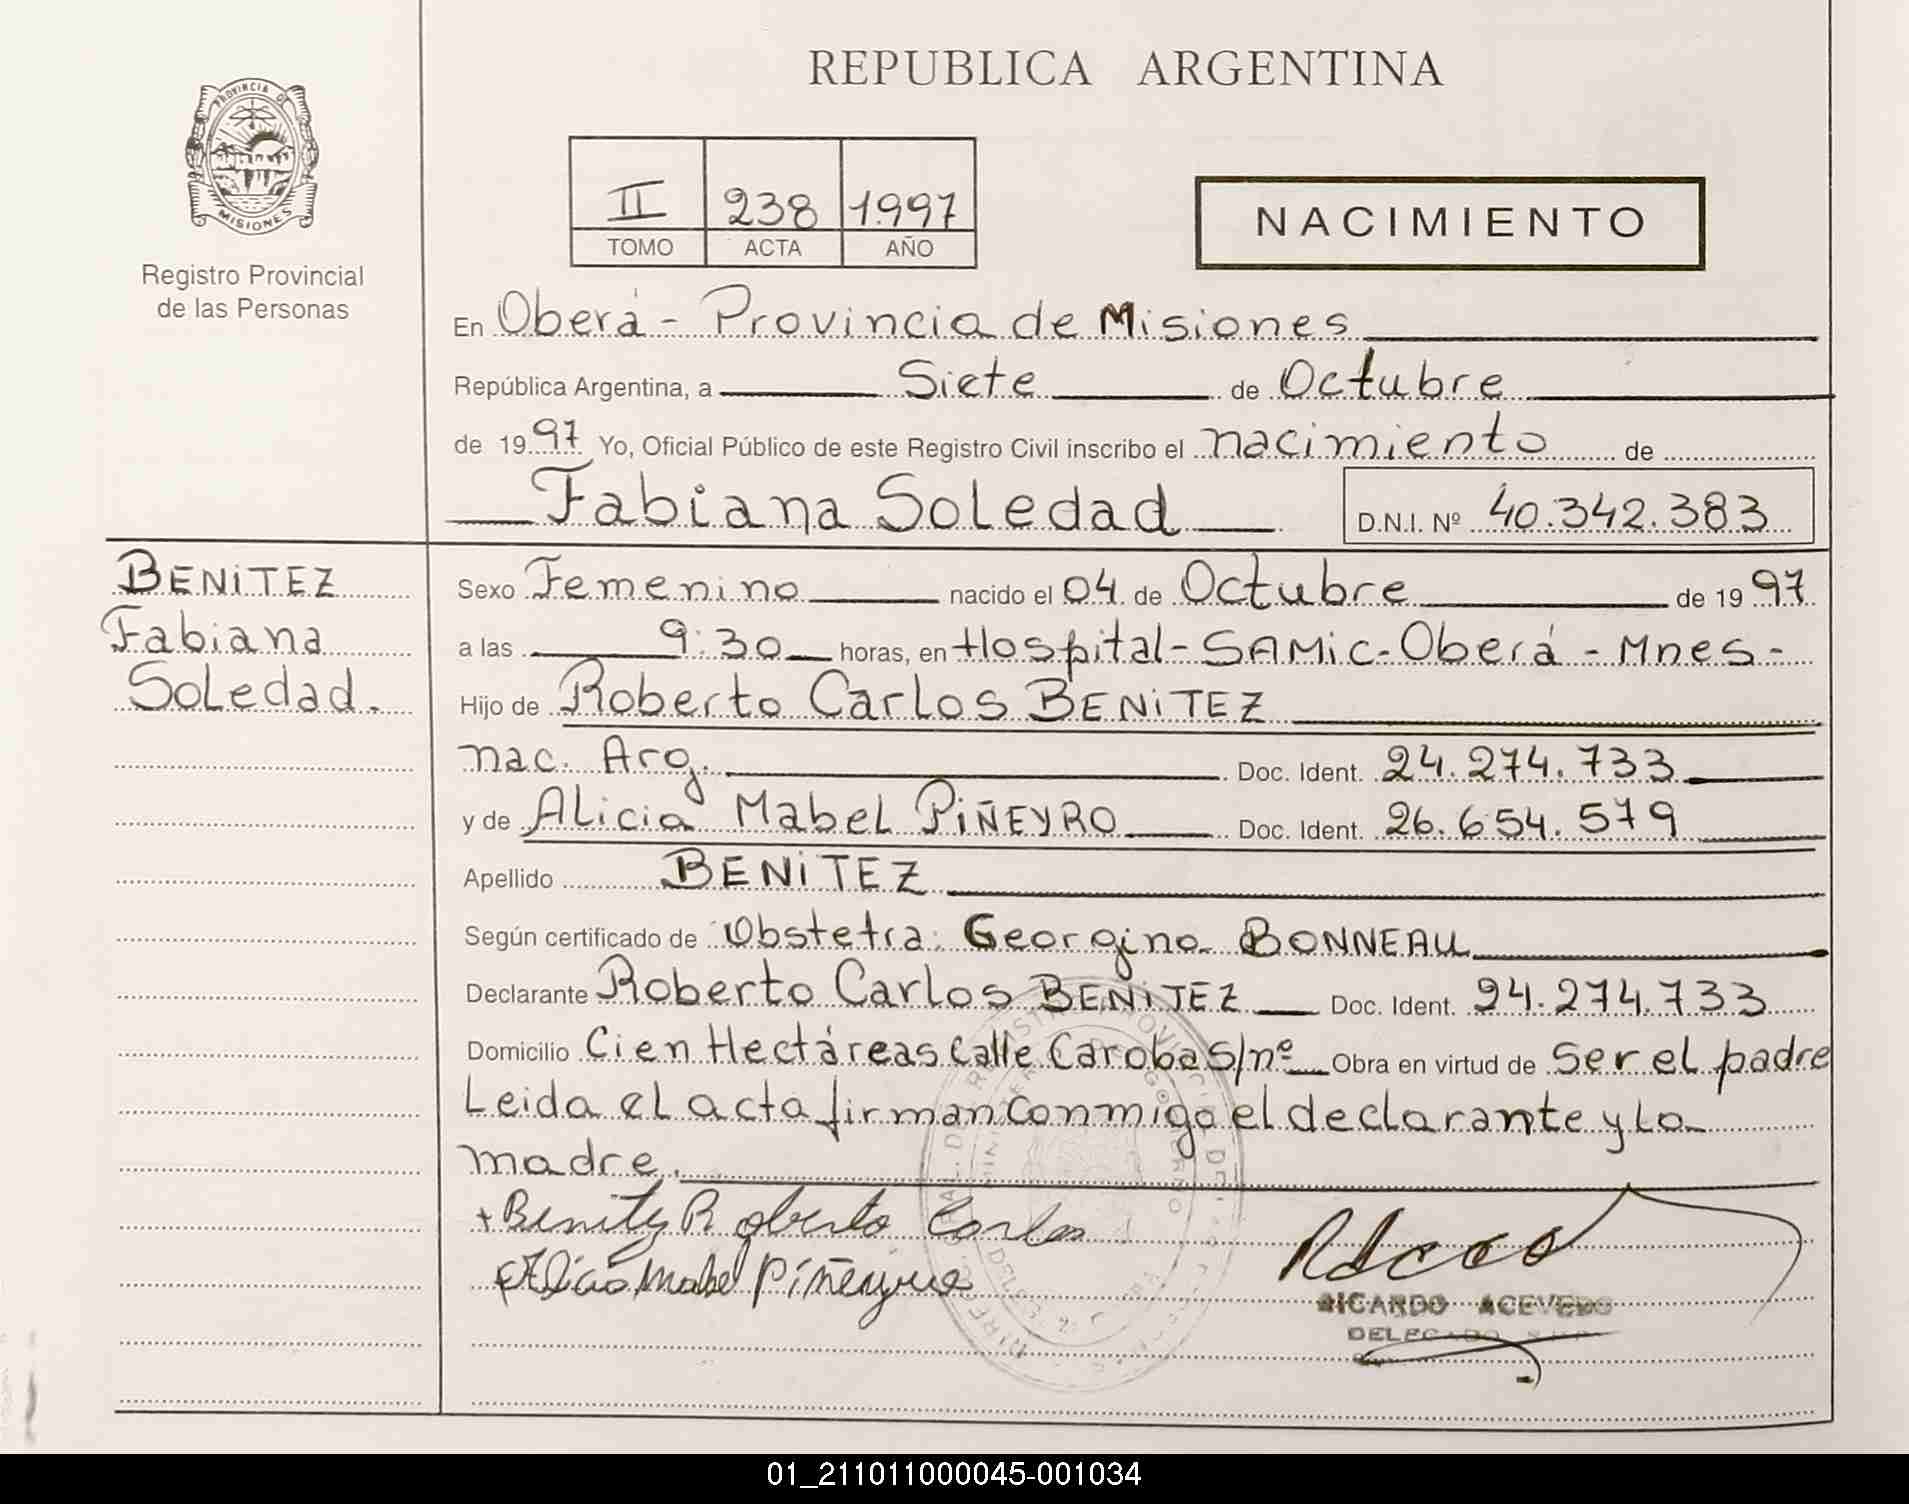 REPUBLICA ARGENTINA
PROVINCIA DE
MISIONES
Registro Provincial
de las Personas
II 238 1997
TOMO ACTA AÑO
NACIMIENTO
En Oberá - Provincia de Misiones
República Argentina, a Siete de Octubre
de 1997 Yo, Oficial Público de este Registro Civil inscribo el nacimiento de
Fabiana Soledad D.N.I. Nº 40.342.383
BENITEZ
Fabiana
Soledad.
Sexo Femenino nacido el 04 de Octubre de 1997
a las 9:30 horas, en Hospital - SAMic - Oberá - Mnes -
Hijo de Roberto Carlos BENITEZ
nac. Arg. Doc. Ident. 24.274.733
y de Alicia Mabel PIÑEYRO Doc. Ident. 26.654.579
Apellido BENITEZ
Según certificado de Obstetra: Georgina BONNEAU
Declarante Roberto Carlos BENITEZ Doc. Ident. 24.274.733
Domicilio Cien Hectáreas Calle Caroba S/nº Obra en virtud de Ser el padre
Leida el acta firman conmigo el declarante y la
madre.
+ Benitez Roberto Carlos
Alicia Mabel Piñeyro
RICARDO ACEVEDO
DELEGADO
01_211011000045-001034